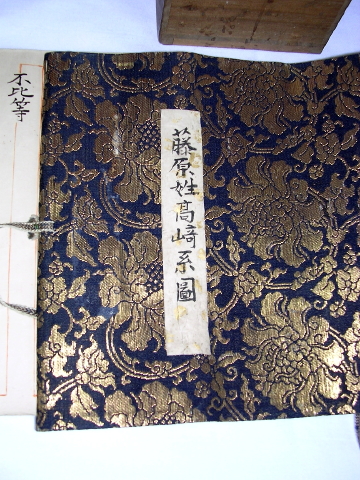 藤原姓高﨑系圖
不比等